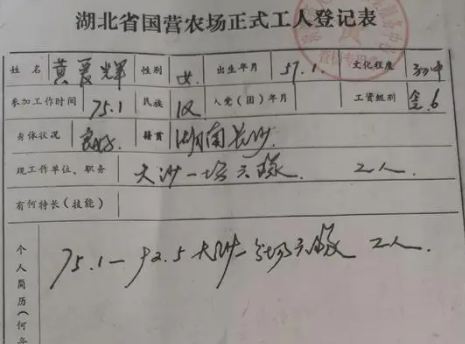 湖北省国营农场正式工人登记表
姓名 黄爱辉 性别 女 出生年月 57.1. 文化程度 初中
参加工作时间 75.1 民族 汉 入党(团)年月 工资级别 6
身体状况 良好 籍贯 湖南长沙
现工作单位、职务 大沙一场六队 工人
有何特长(技能)
个人简历(何年 75.1—92.5 大沙一分场六队 工人.